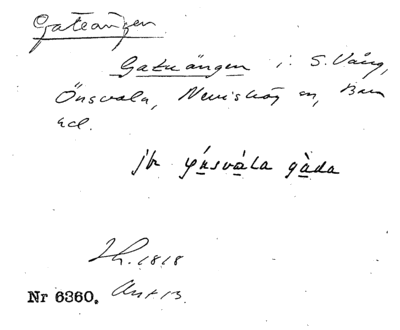 Gateängen
Gatuängen i S. Vång,
Önsvala, Nevishög sn, Bara
hd.
jfr ỳnsvàla gàda
Lh. 1818
Nr 6360. Ant 13